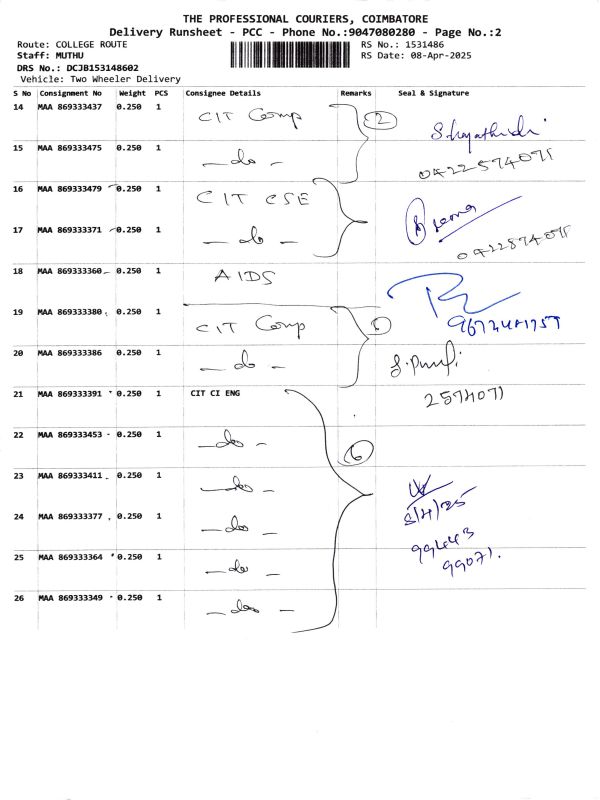 THE PROFESSIONAL COURIERS, COIMBATORE
Delivery Runsheet - PCC - Phone No.:9047080280 - Page No.:2
Route: COLLEGE ROUTE RS No.: 1531486
Staff: MUTHU RS Date: 08-Apr-2025
DRS No.: DCJB153148602
Vehicle: Two Wheeler Delivery
S No Consignment No Weight PCS Consignee Details Remarks Seal & Signature
14 MAA 869333437 0.250 1 CIT Comp 2
15 MAA 869333475 0.250 1 — do — 0422-574071
16 MAA 869333479 0.250 1 CIT CSE
17 MAA 869333371 0.250 1 — do —
18 MAA 869333360 0.250 1 AIDS
19 MAA 869333380 0.250 1 CIT Comp
20 MAA 869333386 0.250 1 — do —
21 MAA 869333391 0.250 1 CIT CI ENG 2574071
22 MAA 869333453 0.250 1 — do — 6
23 MAA 869333411 0.250 1 — do —
8/4/25
24 MAA 869333377 0.250 1 — do — 99443
99071.
25 MAA 869333364 0.250 1 — do —
26 MAA 869333349 0.250 1 — do —